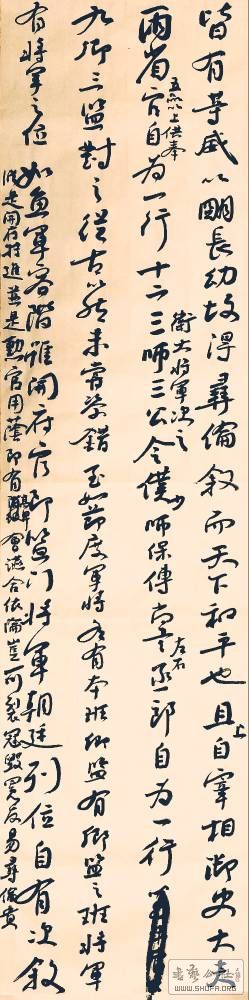 皆有等威以明長幼故得彝倫敘而天下和平也且上自宰相御史大夫
兩省五品以上供奉官自為一行十二衛大將軍次之三師三公令僕少師保傅尚書左右丞侍郎自為一行
九卿三監對之從古以然未嘗參錯至如節度軍將各有本班卿監有卿監之班將軍
有將軍之位
如魚軍容階雖開府官即監門將軍朝廷列位自有次敘
縱是開府特進並是勳官用蔭即有高卑會讌合依倫豈可裂冠毀冕反易彝倫貴
WWW.SHUFA.ORG